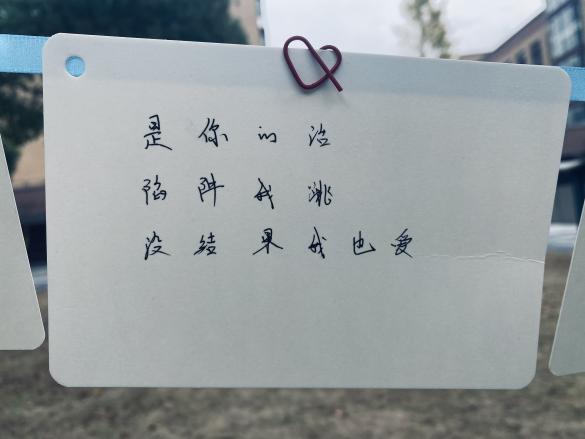 是你的话
陷阱我跳
没结果我也爱